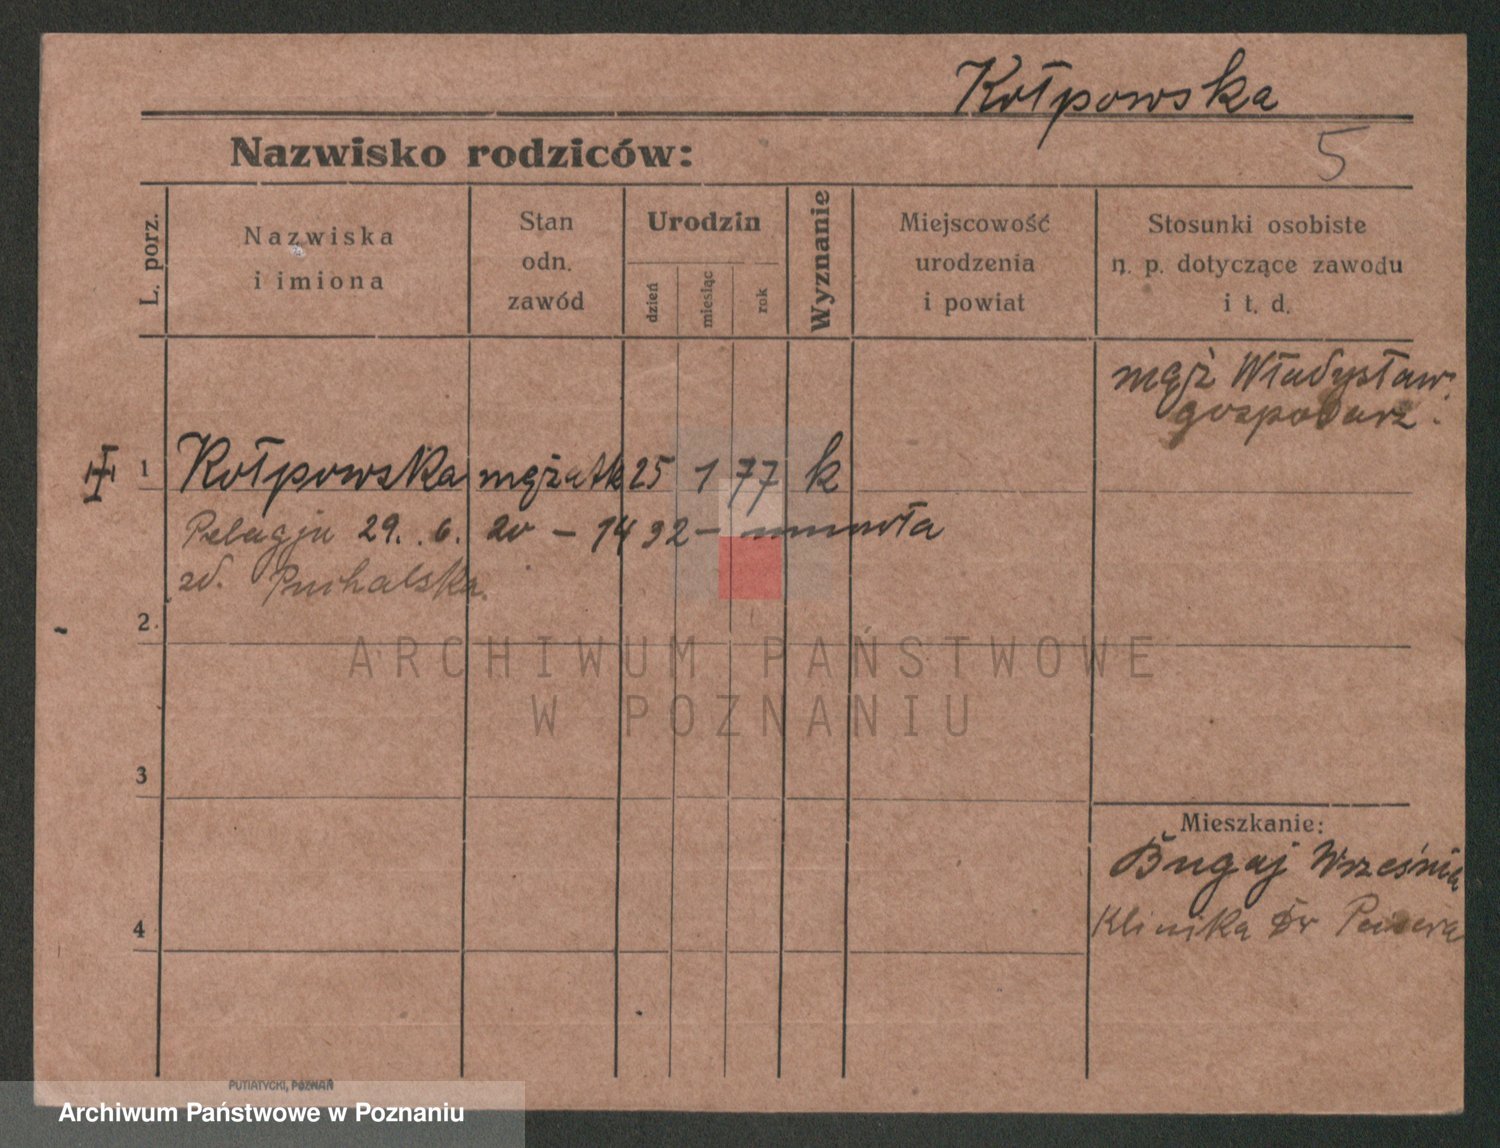 Kołpowska
5
Nazwisko rodziców:
L. porz.
Nazwiska
i imiona
Stan
odn.
zawód
Urodzin
dzień
miesiąc
rok
Wyznanie
Miejscowość
urodzenia
i powiat
Stosunki osobiste
n. p. dotyczące zawodu
i t. d.
mąż Władysław
gospodarz.
1 Kołpowska mężatk 25 1 77 k
Pelagja 29. 6. 20 - 1432 - umarła
zd. Puchalska.
2.
ARCHIWUM PAŃSTWOWE
W POZNANIU
3
Mieszkanie:
Bugaj Września
4
Klinika Dr
PUTIATYCKI, POZNAŃ
Archiwum Państwowe w Poznaniu